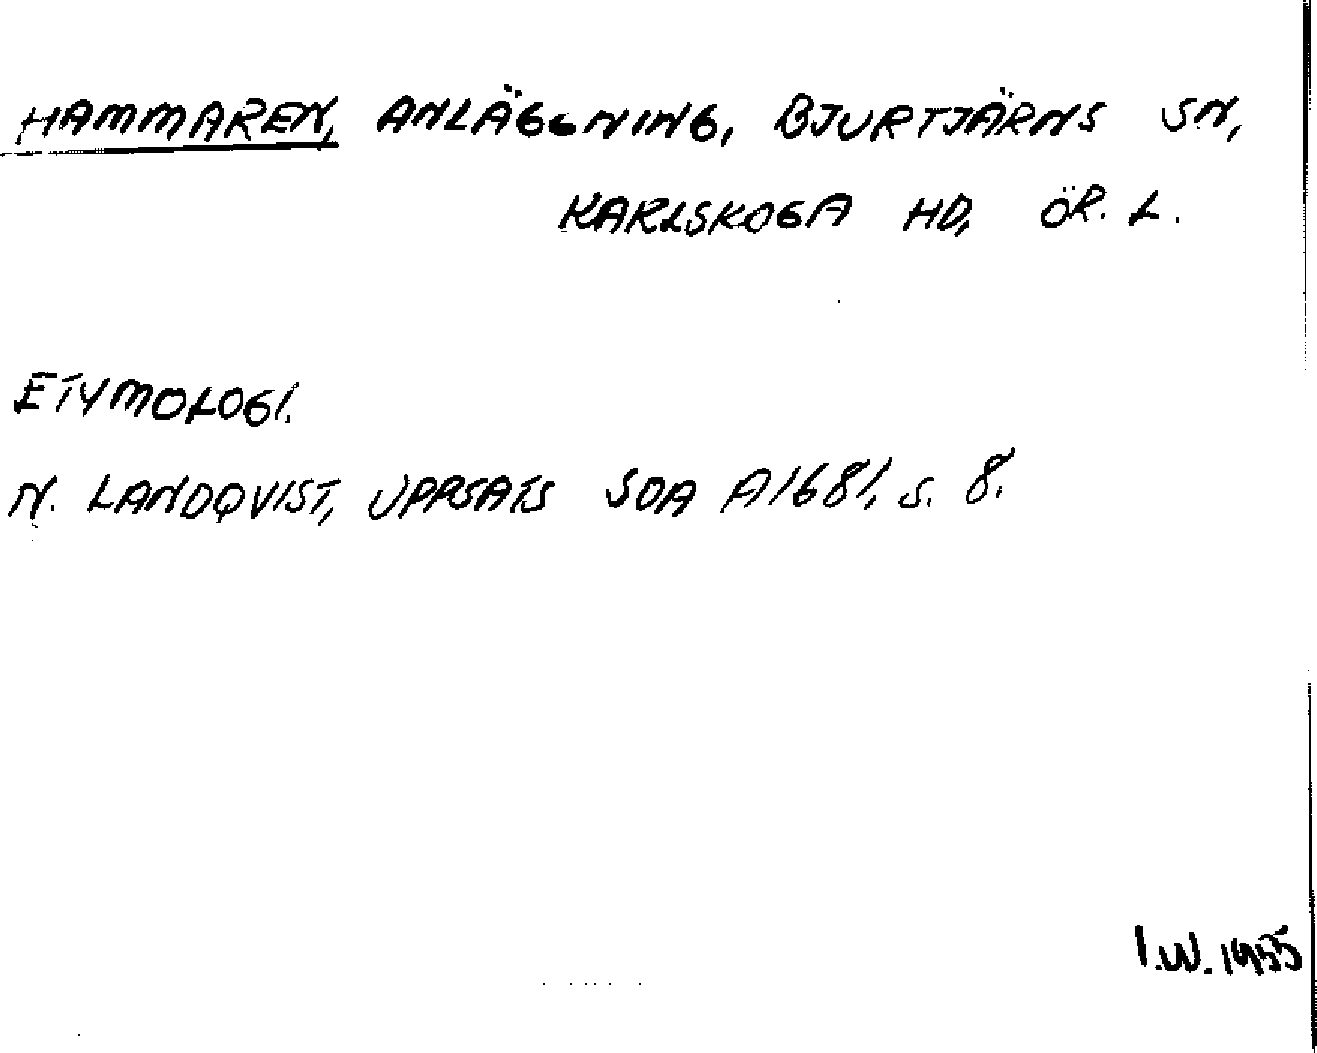 HAMMAREN, ANLÄGGNING, BJURTJÄRNS SN,
KARLSKOGA HD, ÖR. L.
ETYMOLOGI.
N. LANDQVIST, UPPSATS SOA A1681, S. 8.
I.W. 1955